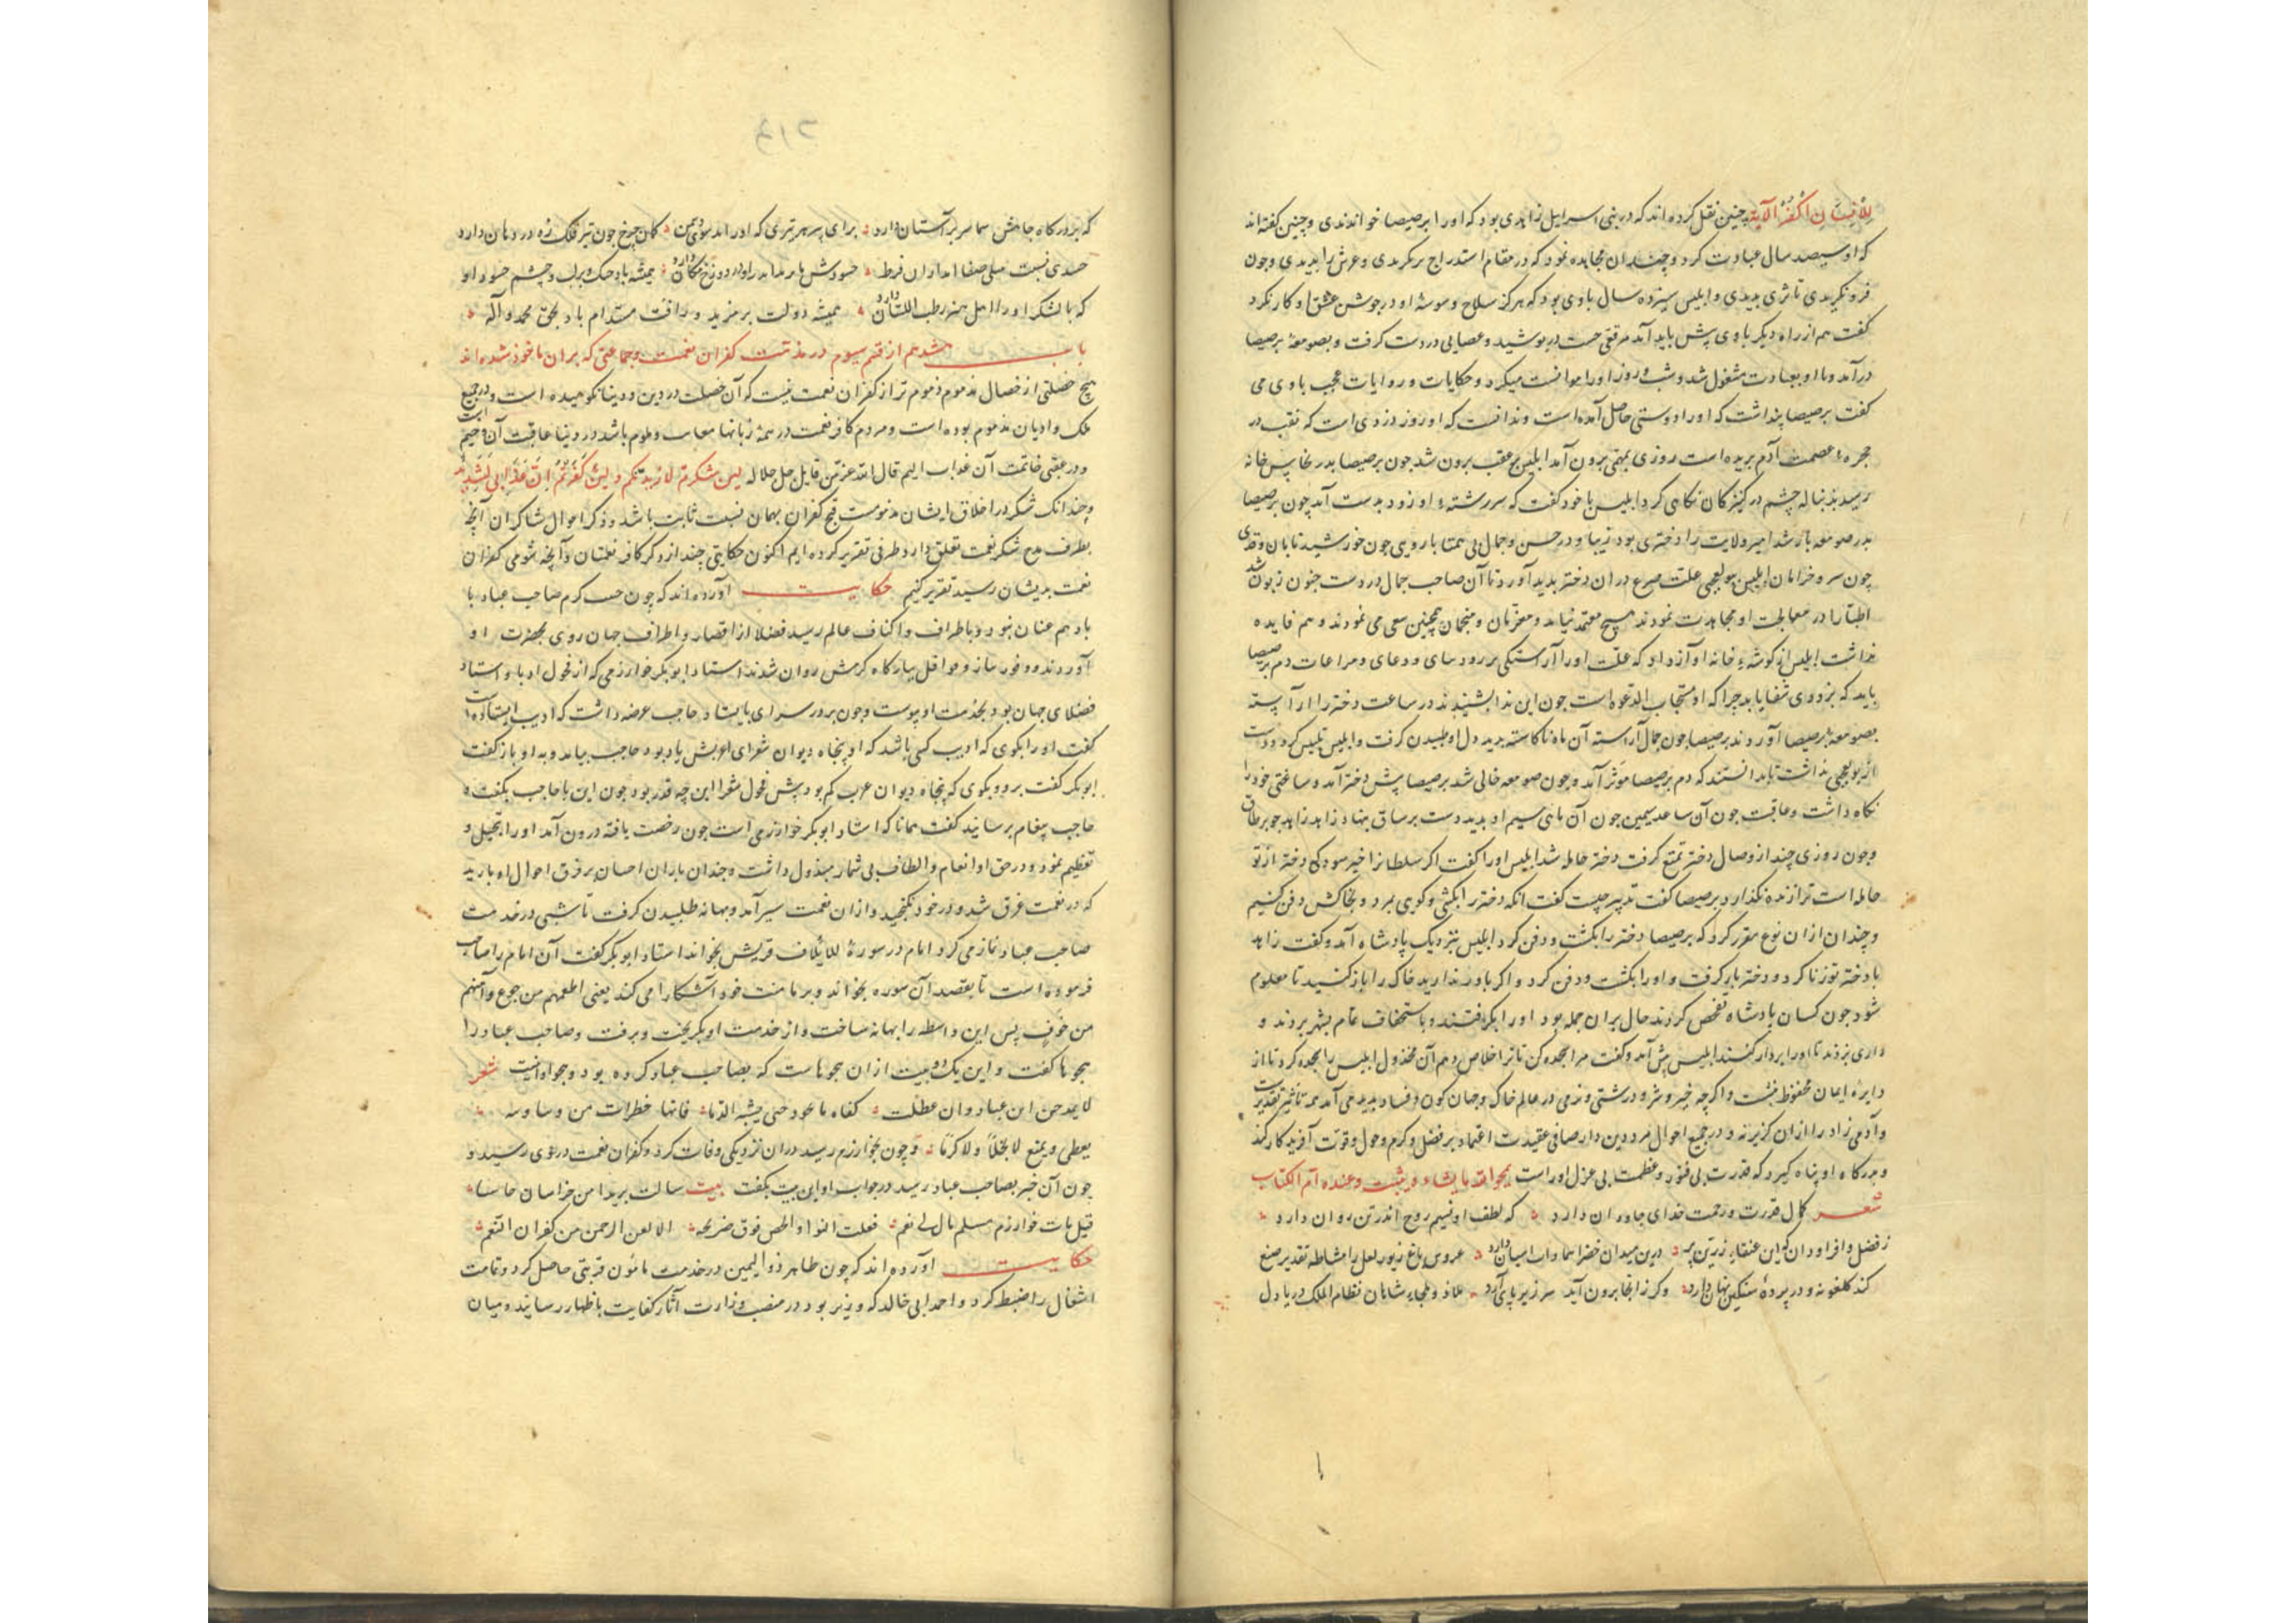 للانسان اکفر الآیة چنین نقل کرده اند که در بنی اسراییل زاهدی بود که او را برصیصا خواندندی و چنین گفته اند
که او سیصد سال عبادت کرد و چندان مجاهده نمود که در مقام استدراج بر نکریدی و عرش را بدیدی و چون
فرو نکریدی تا ثری بدیدی و ابلیس سیزده سال با وی بود که هرکز سلاح وسوسهٔ او در جوشن عشق او کار نکرد
گفت هم از راه دیکر با وی پیش باید آمد مرقعی چست در پوشید و عصایی در دست گرفت و بصومعهٔ برصیصا
درآمد و با او بعبادت مشغول شد و شب و روز او را موانست میکرد و حکایات و روایات عجب با وی می
گفت برصیصا پنداشت که او را دوستی حاصل آمده است و ندانست که او روز دزدی است که نقب در
حجرهٔ عصمت آدم بریده است روزی بمهمی برون آمد ابلیس بر عقب برون شد چون برصیصا بدر نخاس خانه
رسید بدنباله چشم در کنیزکان نکاهی کرد ابلیس با خود گفت که سررشتهٔ او زود بدست آید چون برصیصا
بدر صومعه باز شد امیر ولایت را دختری بود زیبا و در حسن و جمال بی همتا با رویی چون خورشید تابان و قدی
چون سرو خرامان ابلیس ببوالعجبی علت صرع در ان دختر بدید آورد تا آن صاحب جمال در دست جنون زبون شد
اطبا را در معالجت او مجاهدت نمودند هیچ معتمد نیامد و معزمان و منجمان همچنین سعی می نمودند و هم فایده
نداشت ابلیس از کوشهٔ خانه آواز داد که علت او را آراستکی بر رود سای و دعای و مراعات دم برصیصا
باید که بزودی شفا یابد چرا که او مستجاب الدعوه است چون این ندا بشنیدند در ساعت دختر را آراسته
بصومعهٔ برصیصا آوردند برصیصا چون جمال آراسته آن ماه ناکاسته بدید دل او طپیدن گرفت و ابلیس تلبیس کرد و دست
از بوالعجبی نداشت تا بدانستند که دم برصیصا موثر آمد و چون صومعه خالی شد برصیصا پیش دختر آمد و ساعتی خود را
نکاه داشت و عاقبت چون آن ساعد سیمین چون آن ماهی سیم او بدید دست بر ساق نهاد زاهد
و چون روزی چند از وصال دختر تمتع گرفت دختر حامله شد ابلیس او را گفت اکر سلطان را خبر سود کی دختر از تو
حامله است ترا زنده نکذارد برصیصا گفت تدبیر چیست گفت انکه دختر را بکشی و کویی بمرد و بخاکش دفن کنیم
و چندان ازان نوع مقرر کرد که برصیصا دختر را بکشت و دفن کرد ابلیس نزدیک پادشاه آمد و گفت زاهد
با دختر تو زنا کرد و دختر بار کرفت و او را بکشت و دفن کرد و اکر باور ندارید خاک را باز کنید تا معلوم
شود چون کسان پادشاه تفحص کردند حال بران جمله بود او را بکرفتند و باستخفاف تمام بشهر بردند و
داری بزدند تا او را بردار کنند ابلیس پیش آمد و گفت مرا سجده کن تا ترا خلاص دهم آن مخذول ابلیس را سجده کرد تا از
دایرهٔ ایمان محفوظ نشست و اکرچه خیر و شر و درشتی و نرمی در عالم خاک و جهان کون و فساد بدید می آمد همه تاثیر تقدیر است
و آدمی زاد را ازان کزیر نه و در جمیع احوال مرد دین دار صافی عقیدت اعتماد بر فضل و کرم و حول و قوت آفریدکار کند
و بدرکاه او پناه کیرد که قدرت بی فتور و عظمت بی عزل اوراست یمحو الله ما یشاء و یثبت و عنده ام الکتاب
شعر کمال قدرت و رحمت خدای جاودان دارد که لطف او نسیم روح اندر تن روان دارد
ز فضل وافر او دان کاین عنقاء زرین پر درین میدان خضرا سماوات اسیان دارد عروس باغ زیور لعل را مشاطه تقدیر صنع
کند کلغونه و در پردهٔ سنکین نهان دارد وکر زانجا برون آید سر زیر پای آرد ملاذ و ملجاء شاهان نظام الملک دریا دل
۲۱۶
که بر درکاه جاهش سما سر بر آستان دارد برای پر هر تیری که اندازد سوی دشمن کمان چرخ چون تیر فلک زه در دهان دارد
حسدی نسبت صفا اندازان فرط حسودش هر مدار او در دوزخ مکان دارد همیشه باد خشک و برلب و چشم حسود او
که با لشکر او را اهل همه رطب اللسان دارد همیشه دولت بر مزید و رافت مستدام باد بحق محمد و آله
باب هشدهم از قسم سیوم در مذمت کفران نعمت و جماعتی که بران ماخوذ شده اند
هیچ خصلتی از خصال مذموم مذموم تر از کفران نعمت نیست که آن خصلت در دین و دنیا نکوهیده است و در جمیع
ملک و ادیان مذموم بوده است و مردم کافر نعمت در همهٔ زبانها معاتب و ملوم باشد در دنیا عاقبت آن وخیم است
و در عقبی خاتمت آن عذاب الیم قال الله عز من قایل جل جلاله لین شکرتم لازیدنکم و لین کفرتم ان عذابی لشدید
و چندانک شکر در اخلاق ایشان مذمومست قبح کفران بهمان نسبت ثابت باشد و ذکر احوال شاکران آنچه
بطرف مدح شکر نعمت تعلق دارد طرفی تقریر کرده ایم اکنون حکایتی چند از ذکر کافر نعمتان و آنچه شومی کفران
نعمت بدیشان رسید تقریر کنیم حکایت آورده اند که چون صیت کرم صاحب عباد با
باد هم عنان بود و باطراف و اکناف عالم رسید فضلا از اقصار و اطراف جهان روی بحضرت او
آوردند و وفور ساز و موافل ببارکاه کرمش روان شدند استاد ابو بکر خوارزمی که از فحول ادبا و استاد
فضلای جهان بود بخدمت او پیوست و چون بر در سرای بایستاد حاجب عرضه داشت که ادیب ایستاده است
گفت او را بکوی که ادیب کسی باشد که او پنجاه دیوان شعرای عربش یاد بود حاجب بیامد و به او باز گفت
ابوبکر گفت برو و بکوی که پنجاه دیوان عرب کم بود پیش فحول شعرا این چه قدر بود چون این با حاجب بکفت
حاجب پیغام برسانید گفت همانا که استاد ابوبکر خوارزمی است چون رخصت یافته درون آمد او را تبجیل و
تعظیم نمود و در حق او انعام و الطاف بی شمار مبذول داشت و چندان باران احسان بر فرق احوال او بارید
که در نعمت غرق شد و در خود نکنجید و ازان نعمت سیر آمد و بهانه طلبیدن گرفت تا شبی در خدمت
صاحب عباد نماز می کرد امام در سورهٔ لایلاف قریش بخواند استاد ابوبکر گفت آن امام را صاحب
فرموده است تا بقصد آن سوره بخواند و بر ما منت خود آشکارا می کند یعنی اطعمهم من جوع و آمنهم
من خوف پس این واسطه را بهانه ساخت و از خدمت او بکریخت و برفت و صاحب عباد را
هجوها گفت و این یک دو بیت ازان هجوهاست که بصاحب عباد کرده بود و جواد انیست شعر
لا یمدحن ابن عباد و ان هطلت کفاه بالجود حتی یشبه الدیما فانها خطرات من وساوسه
یعطی و یمنع لا بخلا و لا کرما و چون بخوارزم رسید دران نزدیکی وفات کرد و کفران نعمت در وی رسید و
چون آن خبر بصاحب عباد رسید در جواب او این بیت بکفت بیت سالت بریدا من خراسان جاییا
قیل مات خوارزمیکم قال لی نعم فقلت اکتبوا بالجص فوق ضریحه الا لعن الرحمن من کفران النعم
حکایت آورده اند که چون طاهر ذوالیمین در خدمت مامون قربتی حاصل کرد و تمامت
اشغال را ضبط کرد و احمد ابی خالد که وزیر بود در منصب وزارت آثار کفایت باظهار رسانید و میان